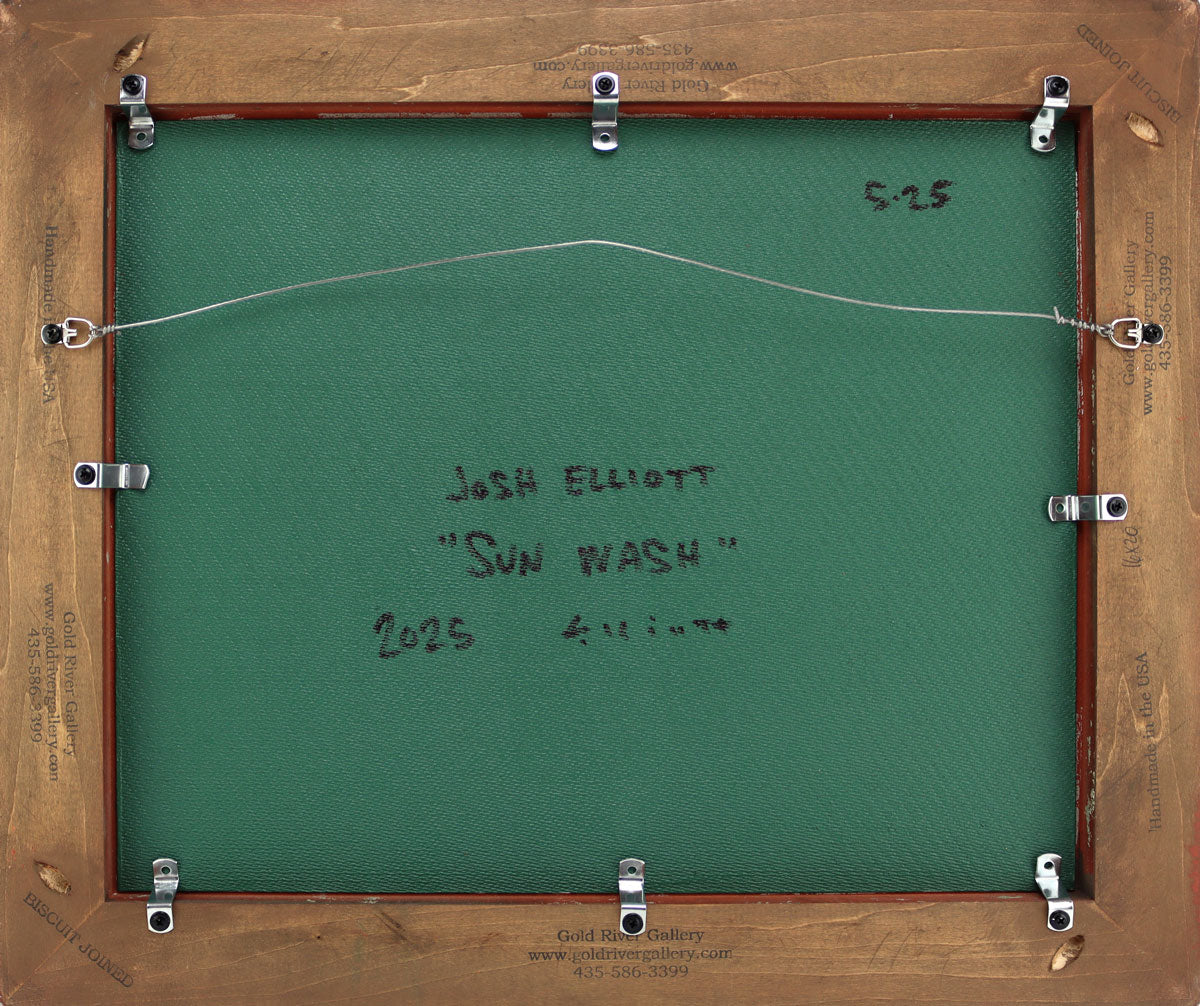 435-586-3399
www.goldrivergallery.com
Gold River Gallery
BISCUIT JOINED
5·25
Handmade in the USA
Gold River Gallery
www.goldrivergallery.com
435-586-3399
JOSH ELLIOTT
"SUN WASH"
2025 Elliott
16x20
Gold River Gallery
www.goldrivergallery.com
435-586-3399
Handmade in the USA
BISCUIT JOINED
Gold River Gallery
www.goldrivergallery.com
435-586-3399